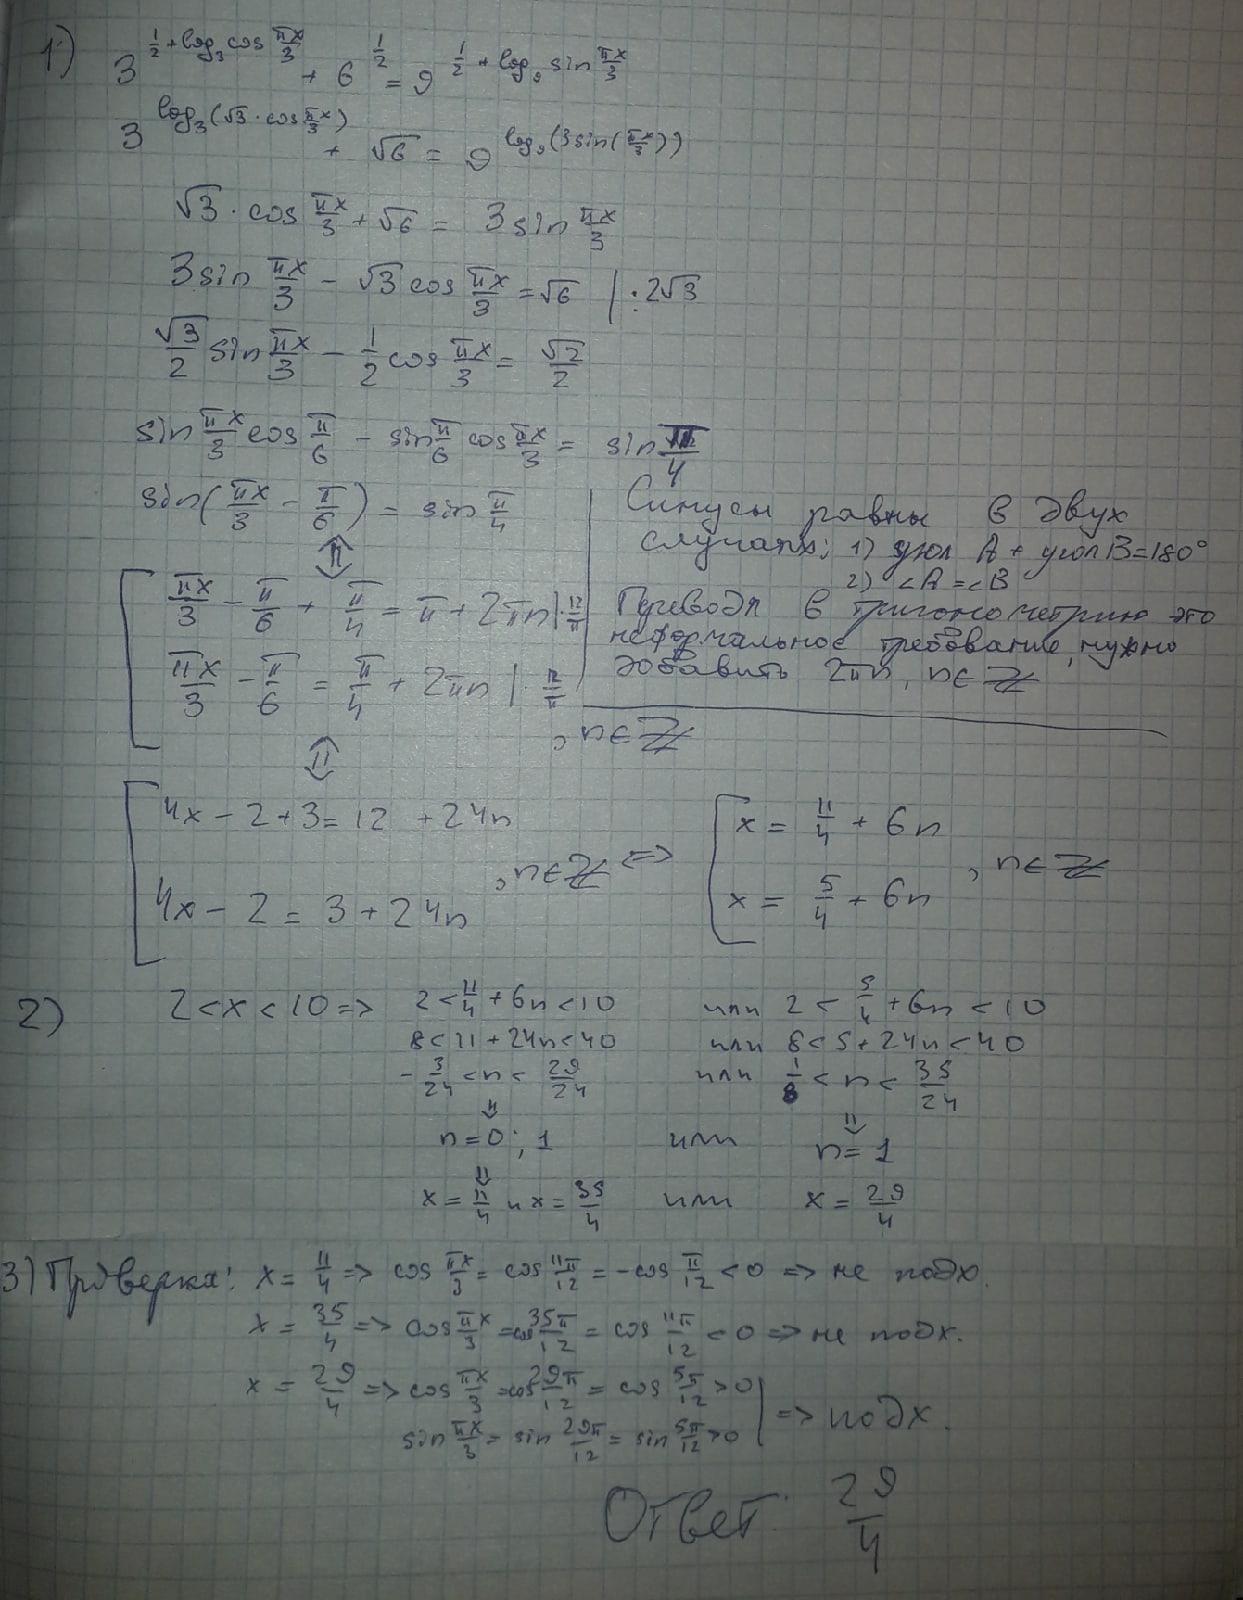 1) 3^(1/2 + log₃ cos πx/3) + 6^(1/2) = 9^(1/2 + log₉ sin πx/3)
3^(log₃(√3 · cos πx/3)) + √6 = 9^(log₉(3 sin(πx/3)))
√3 · cos πx/3 + √6 = 3 sin πx/3
3 sin πx/3 - √3 cos πx/3 = √6 | : 2√3
√3/2 sin πx/3 - 1/2 cos πx/3 = √2/2
sin πx/3 cos π/6 - sin π/6 cos πx/3 = sin π/4
sin(πx/3 - π/6) = sin π/4
⇕
[ πx/3 - π/6 + π/4 = π + 2πn | · 12/π
πx/3 - π/6 = π/4 + 2πn | · 12/π
, n ∈ ℤ
Синусы равны в двух
случаях: 1) угол A + угол B = 180°
2) ∠A = ∠B
Переводя в тригонометрию это
неформальное требование, нужно
добавить 2πn, n ∈ ℤ
⇕
[ 4x - 2 + 3 = 12 + 24n
4x - 2 = 3 + 24n
, n ∈ ℤ <=>
[ x = 11/4 + 6n
x = 5/4 + 6n
, n ∈ ℤ
2) 2 < x < 10 => 2 < 11/4 + 6n < 10 или 2 < 5/4 + 6n < 10
8 < 11 + 24n < 40 или 8 < 5 + 24n < 40
- 3/24 < n < 29/24 или 1/8 < n < 35/24
⇓ ⇓
n = 0 ; 1 или n = 1
⇓
x = 11/4 и x = 35/4 или x = 29/4
3) Проверка: x = 11/4 => cos πx/3 = cos 11π/12 = - cos π/12 < 0 => не подх.
x = 35/4 => cos πx/3 = cos 35π/12 = cos 11π/12 < 0 => не подх.
x = 29/4 => cos πx/3 = cos 29π/12 = cos 5π/12 > 0
sin πx/3 = sin 29π/12 = sin 5π/12 > 0 | => подх.
Ответ: 29/4